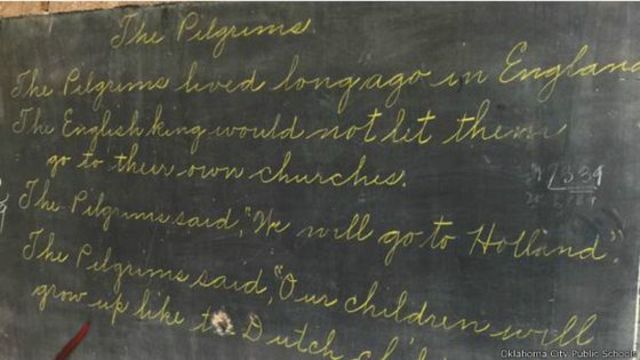 The Pilgrims.
The Pilgrims lived long ago in England
The English king would not let them
go to their own churches.
The Pilgrims said, "We will go to Holland."
The Pilgrims said, "Our children will
grow up like the Dutch
Oklahoma City Public Schools